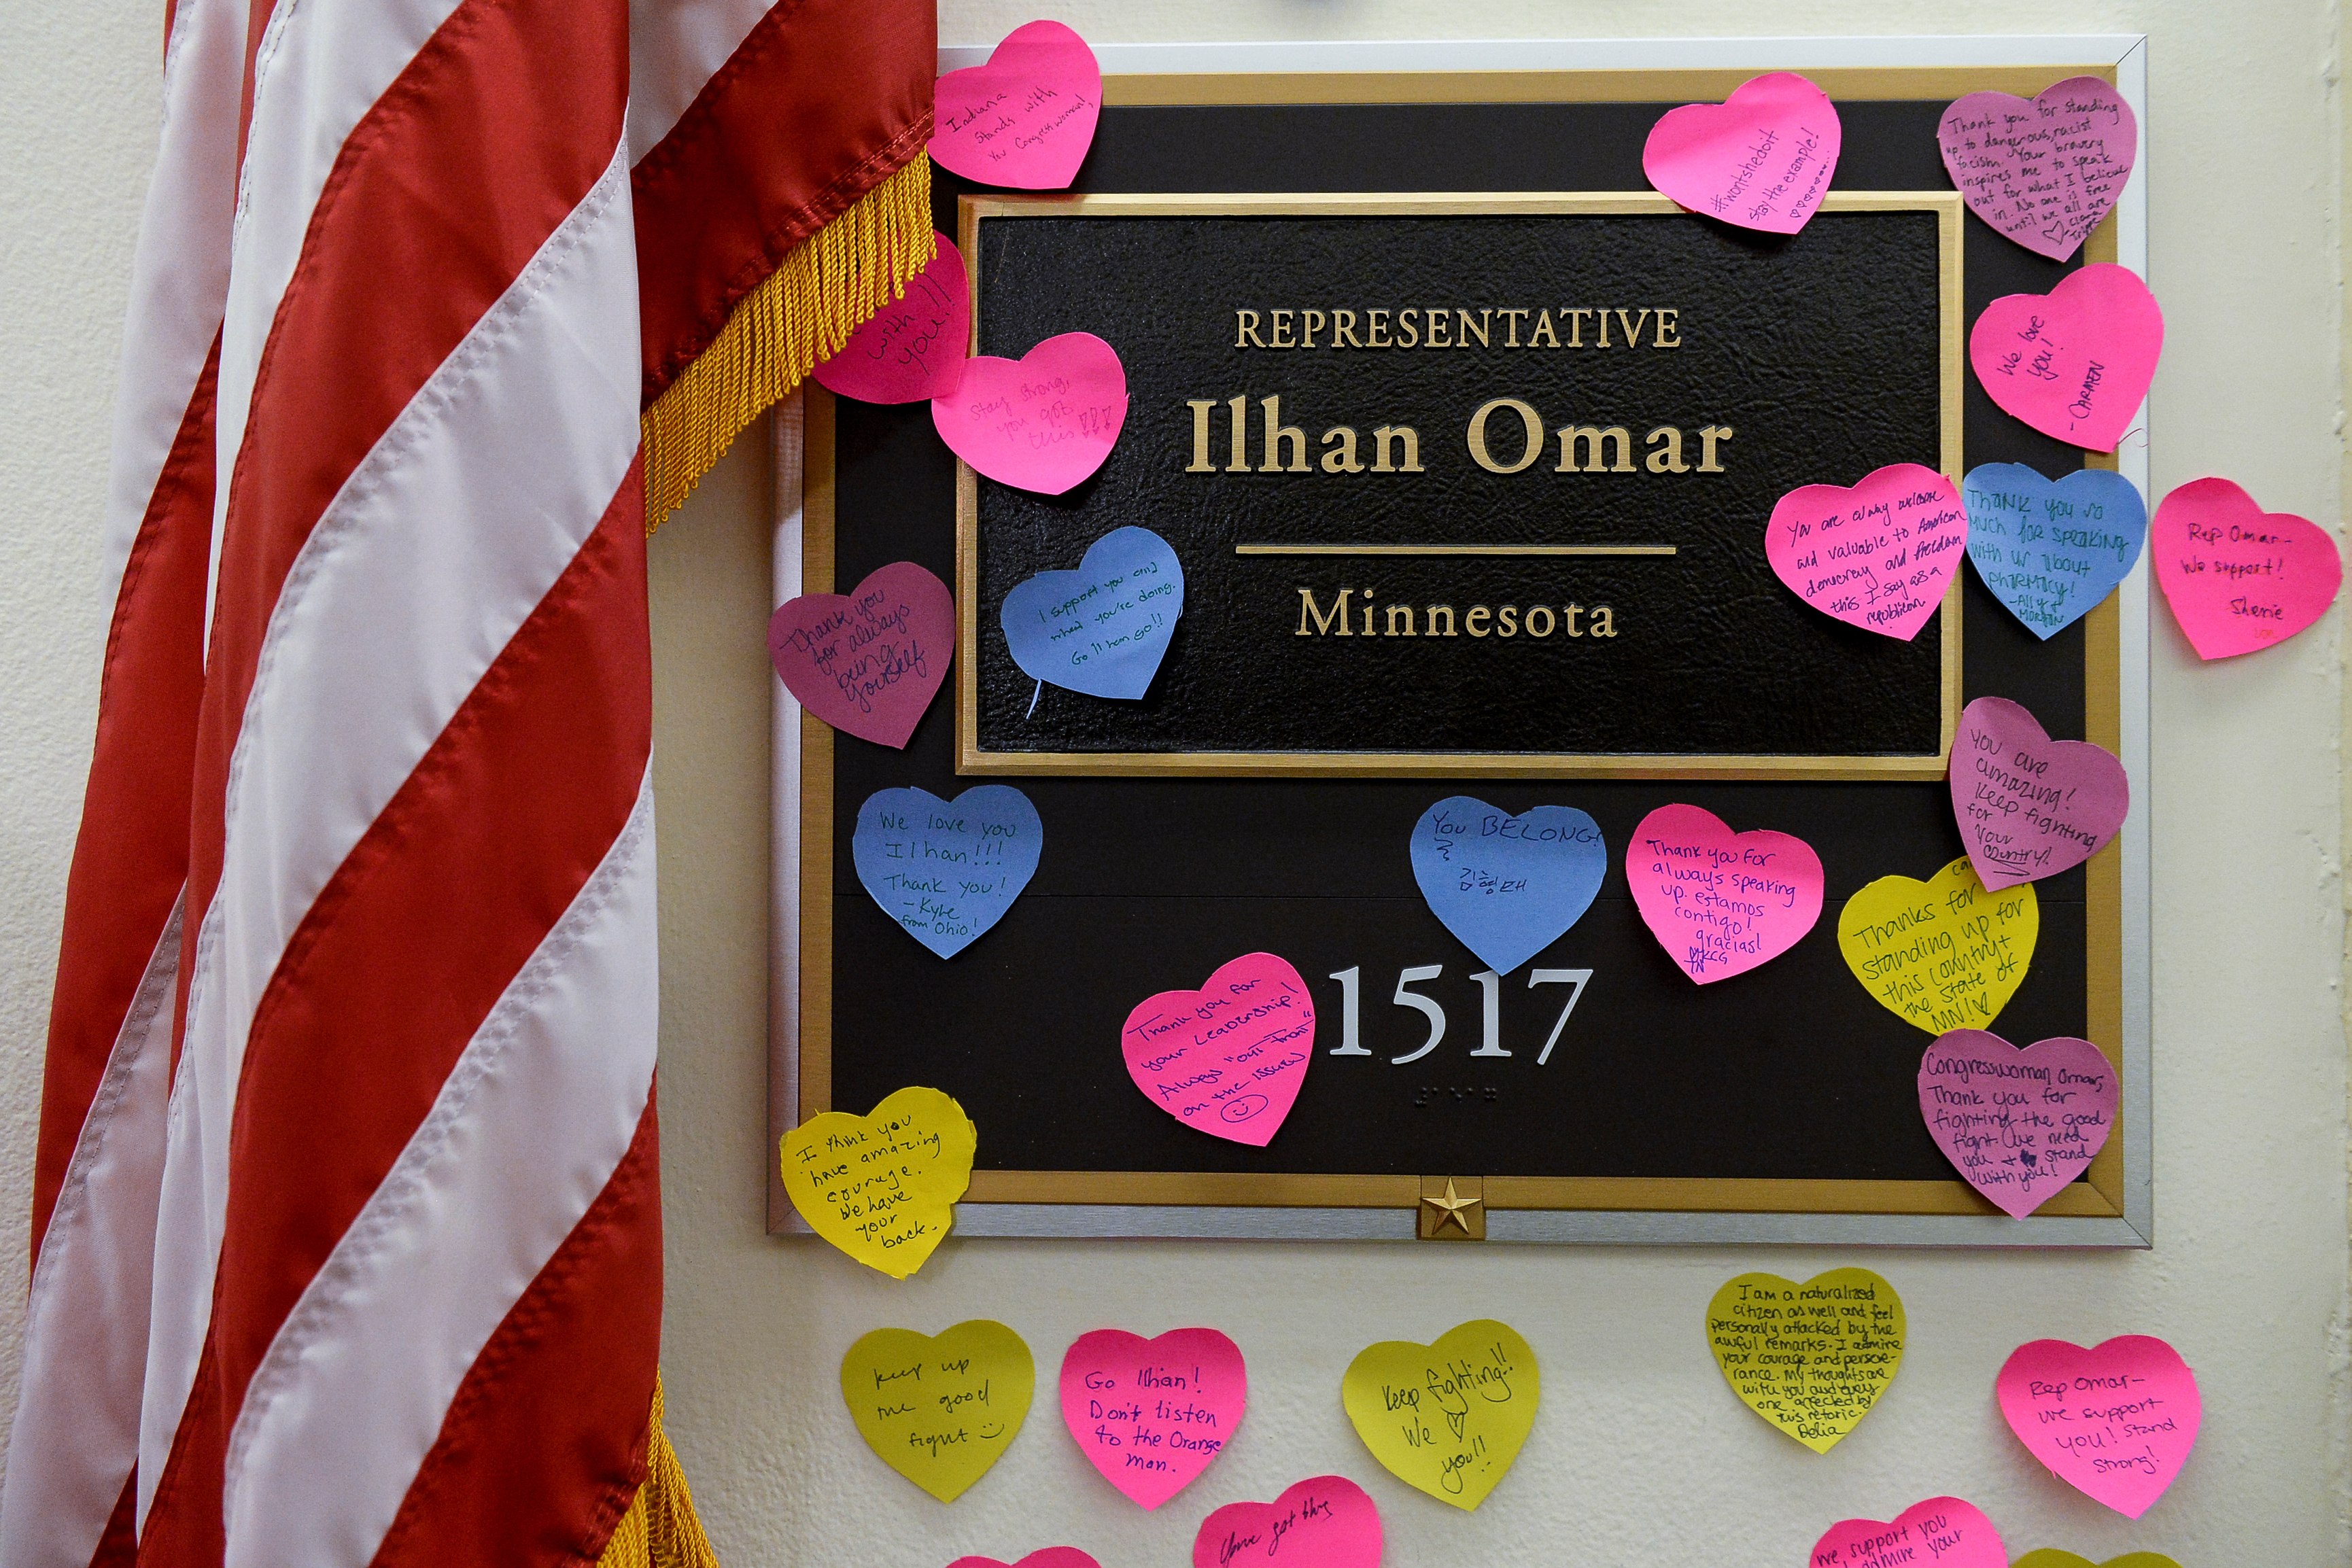 Indiana
Stands with
You Congresswoman!
#wontshedoit
stay the example!
Thank you for standing
up to dangerous, racist
facism. Your bravery
inspires me to speak
out for what I believe
in. No one is free
until we all are
♡ - Clara
REPRESENTATIVE
Ilhan Omar
Minnesota
1517
with
you!!
Stay strong,
you got
this!!!
We love
you!
- CARMEN
You are
welcome
and valuable to American
democracy and freedom
this I say as a
republican
THANK YOU SO
MUCH FOR SPEAKING
WITH US ABOUT
PHARMACY!
Rep Omar-
We support!
Sherie
I support you and
what you're doing.
Go Ilhan GO!!
Thank you
for always
being
yourself
You are
amazing!
Keep fighting
for
your
country!
We love you
Ilhan!!!
Thank you!
- Kyle
from Ohio!
You BELONG!
김형태
Thank you for
always speaking
up. estamos
contigo!
gracias!
Thanks for
standing up for
this country +
the State of
MN! ♡
Thank you for
your Leadership!
Always "out front"
on the issues
Congresswoman Omar,
Thank you for
fighting the good
fight. We need
you + stand
with you!
I think you
have amazing
courage.
We have
your
back.
keep up
the good
fight
Go Ilhan!
Don't listen
to the Orange
man.
Keep fighting!!
We ♡
you!!
I am a naturalized
citizen as well and feel
personally attacked by the
awful remarks. I admire
your courage and perseve-
rance. My thoughts are
with you and every
one affected by
this retoric.
Delia
Rep Omar-
we support
you! Stand
strong!
You got this
we support you
admire your